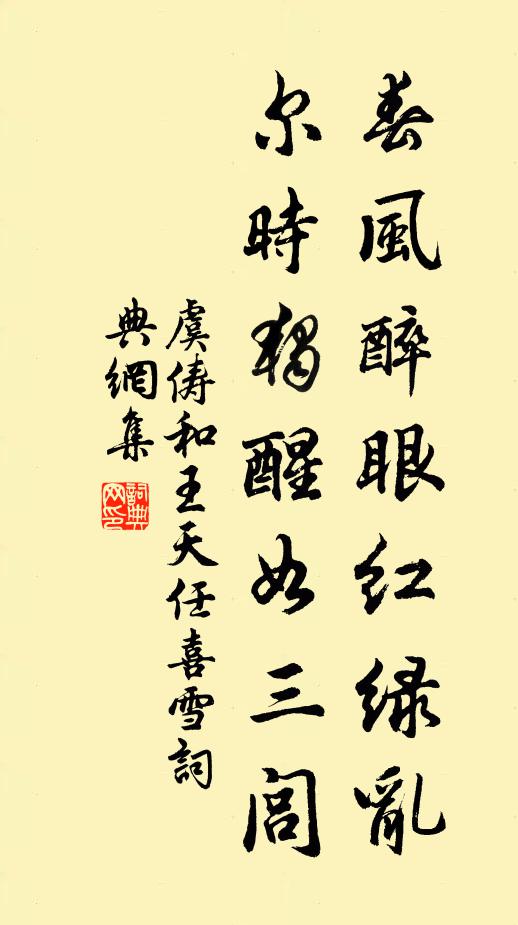 春風醉眼红绿亂
尔時獨醒如三閭
虞俦和王天任喜雪詞
典網集
詞典
网印